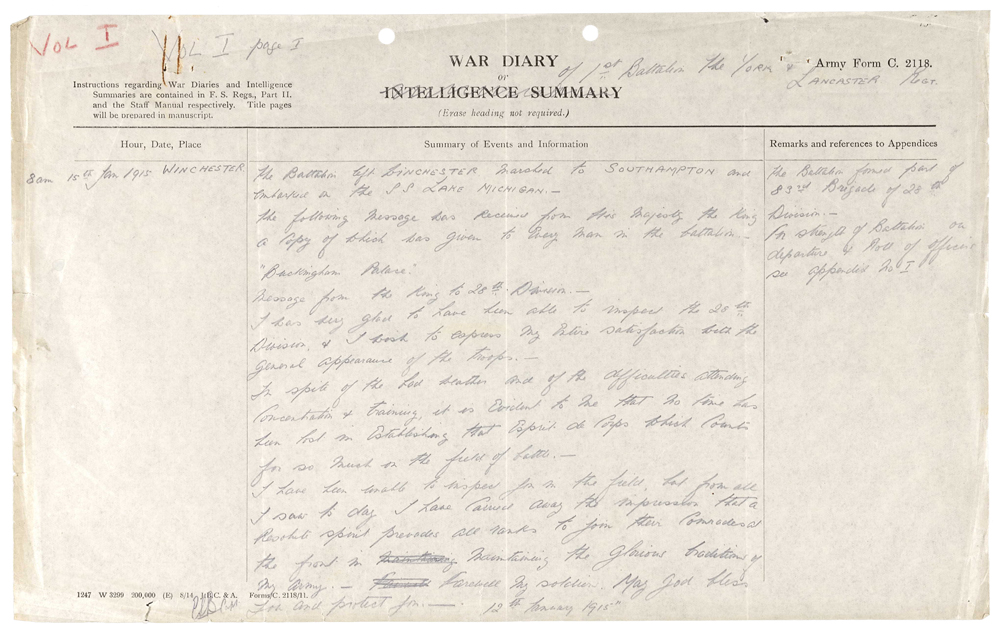 VOL I
VOL I page I
WAR DIARY
of 1st Battalion the York & Lancaster Regt.
or
INTELLIGENCE SUMMARY
(Erase heading not required.)
Army Form C. 2118.
Instructions regarding War Diaries and Intelligence
Summaries are contained in F. S. Regs., Part II.
and the Staff Manual respectively. Title pages
will be prepared in manuscript.
Hour, Date, Place
Summary of Events and Information
Remarks and references to Appendices
8am 15th Jan 1915 WINCHESTER
The Battalion left WINCHESTER marched to SOUTHAMPTON and
embarked on the SS LAKE MICHIGAN.—
The following message was received from His Majesty the King
a copy of which was given to every man in the battalion.—
"Buckingham Palace"
Message from the King to 28th Division.—
I was very glad to have been able to inspect the 28th
Division, & I wish to express my entire satisfaction with the
general appearance of the troops.—
In spite of the bad weather and of the difficulties attending
concentration & training, it is evident to me that no time has
been lost in establishing that Esprit de Corps which counts
for so much on the field of battle.—
I have been unable to inspect you in the field, but from all
I saw to day I have carried away the impression that a
resolute spirit prevades all ranks to join their comrades at
the front in maintaining the glorious traditions of
my army.— Farewell my soldiers. May God bless
you and protect you.— 12th January 1915"
The Battalion formed part of
83rd Brigade of 28th
Division.—
For strength of Battalion on
departure & Roll of officers
see appendix No I
1247 W 3299 200,000 (E) 8/14 J.B.C. & A. Forms/C. 2118/11.